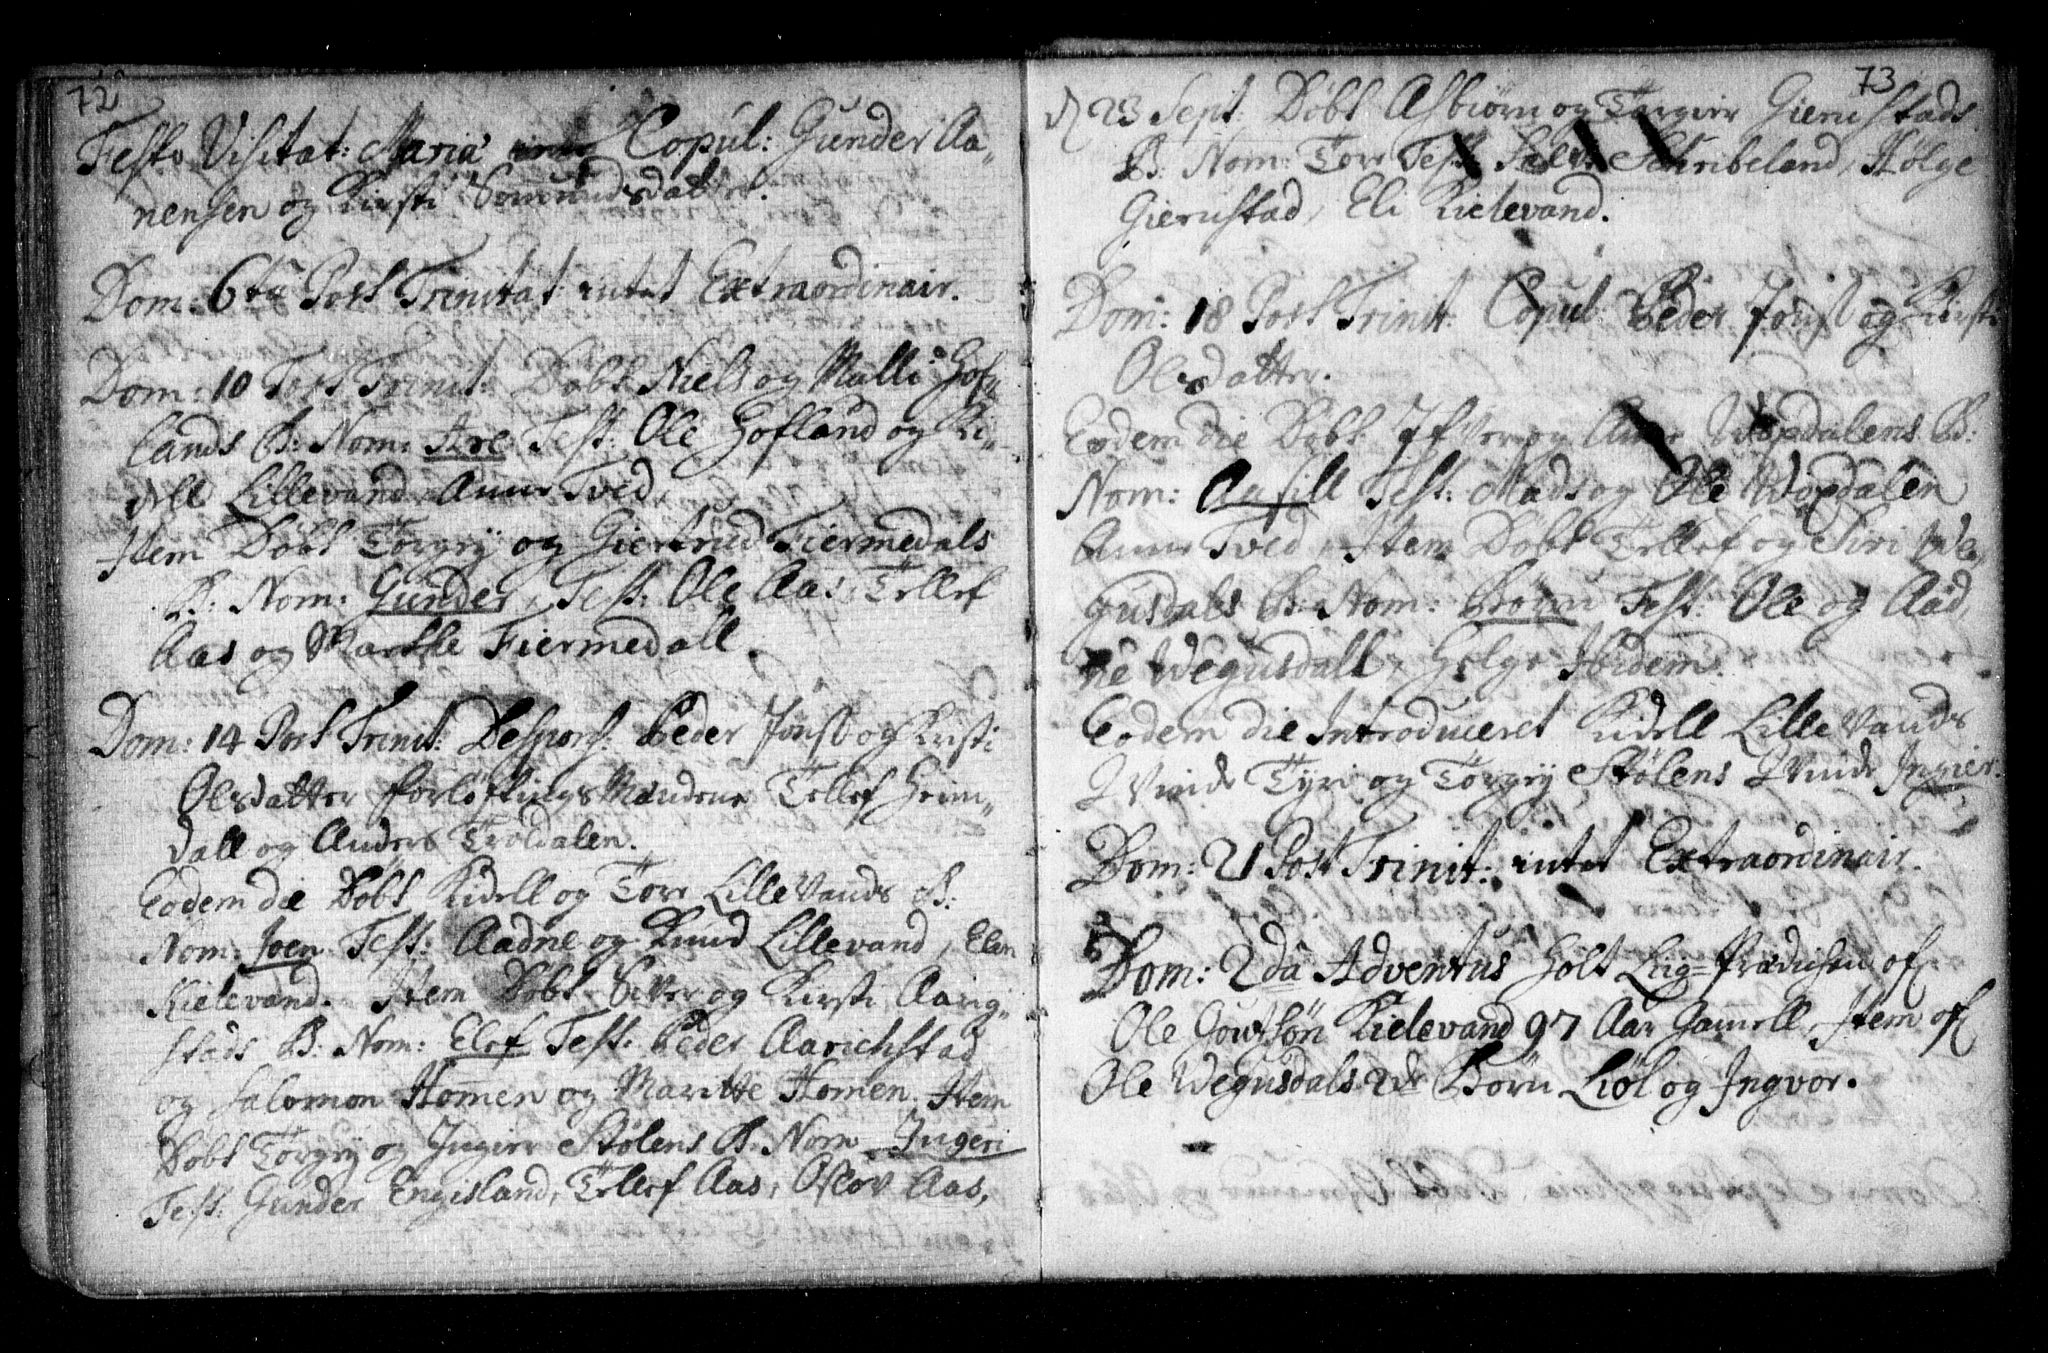 72
Festo Visitat: Maria Copul: Gunder Aa„
nensen og Kirsti Somundsdatter.
Dom: 6ta Post Trinitat intet Extraordinair.
Dom: 10 Post Trinit: Døbt Niels og Malli Hof„
lands B: Nom: Are Test: Ole Hofland og Ki„
dell Lillevand, Anne Tved,
Item Døbt Torgry og Giertrud Fiermedals
B: Nom: Gunder, Test: Ole Aas, Tellef
Aas og Marthe Fiermedall.
Dom: 14 Post Trinit: Despons: Peder Jonss og Kirsti
Olsdatter forløftings Mændene Tellef Heim„
dall og Anders Troldalen.
Eodem die Døbt Kidell og Tore Lille Vands B:
Nom: Joen Test: Aadne og Knud Lillevand, Elen
Kielevand. Item Døbt Siver og Kirsti Aarig„
stads B: Nom: Elef Test: Peder Aarichstad
og Salomon Homen og Maritte Homen. Item
Døbt Torgry og Ingier Stølens B: Nom Ingeri
Test: Gunder Engisland, Tellef Aas, Aslov Aas,
73
d 23 Sept: Døbt Asbiørn og Torgier Gierustads
B: Nom: Tore Test: Schribeland, Hølge
Gierustad, Eli Kielevand.
Dom: 18 Post Trinit: Copul: Peder Jonss og Kirsti
Olsdatter.
Eodem die Døbt Ifver og Anne Wopdalens B:
Nom: Aasill Test: Mads og Ole Wopdalen
Anne Tved, Item Døbt Tellef og Siri We„
gusdals B: Nom: Biørn Test: Ole og Aad„
ne Wegusdall, Helge Ibidem.
Eodem die Introduceret Kidell Lille Vands
Qvinde Tyri og Torgry Stølens Qvinde Ingier.
Dom: 21 Post Trinit: intet Extraordinair.
Dom: 2da Adventus Holt Liig-Prædichen of
Ole Goutsøn Kielevand 97 Aar Gamell, Item of
Ole Wegusdals 2de Børn Liøl og Ingvor.